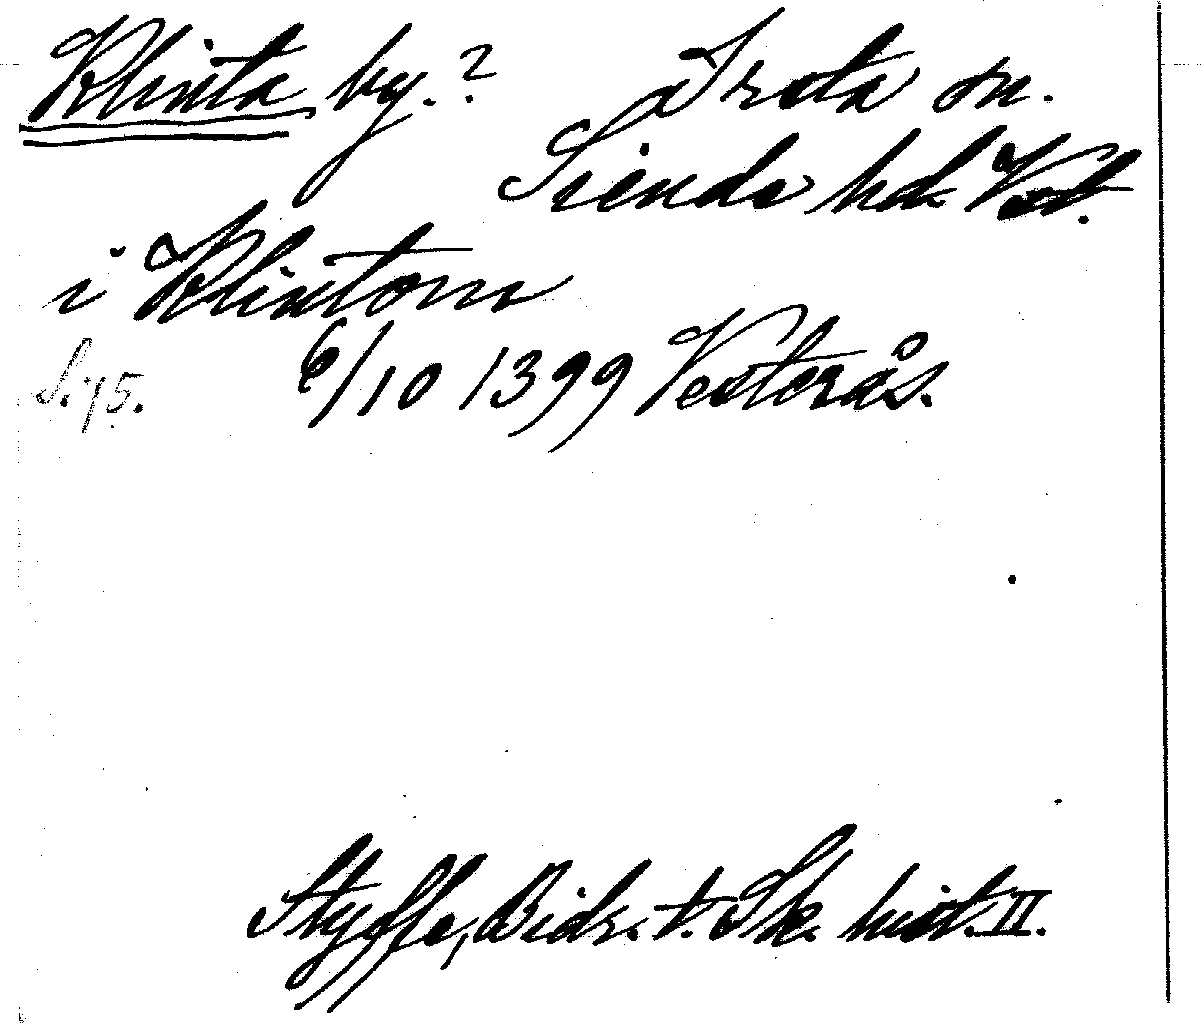 Klinta by.? Irsta sn.
Siende hd. Vstl.
i Klintom
S. 75. 6/10 1399 Vesterås.
Styffe, Bidr. t. Sk. hist. II.